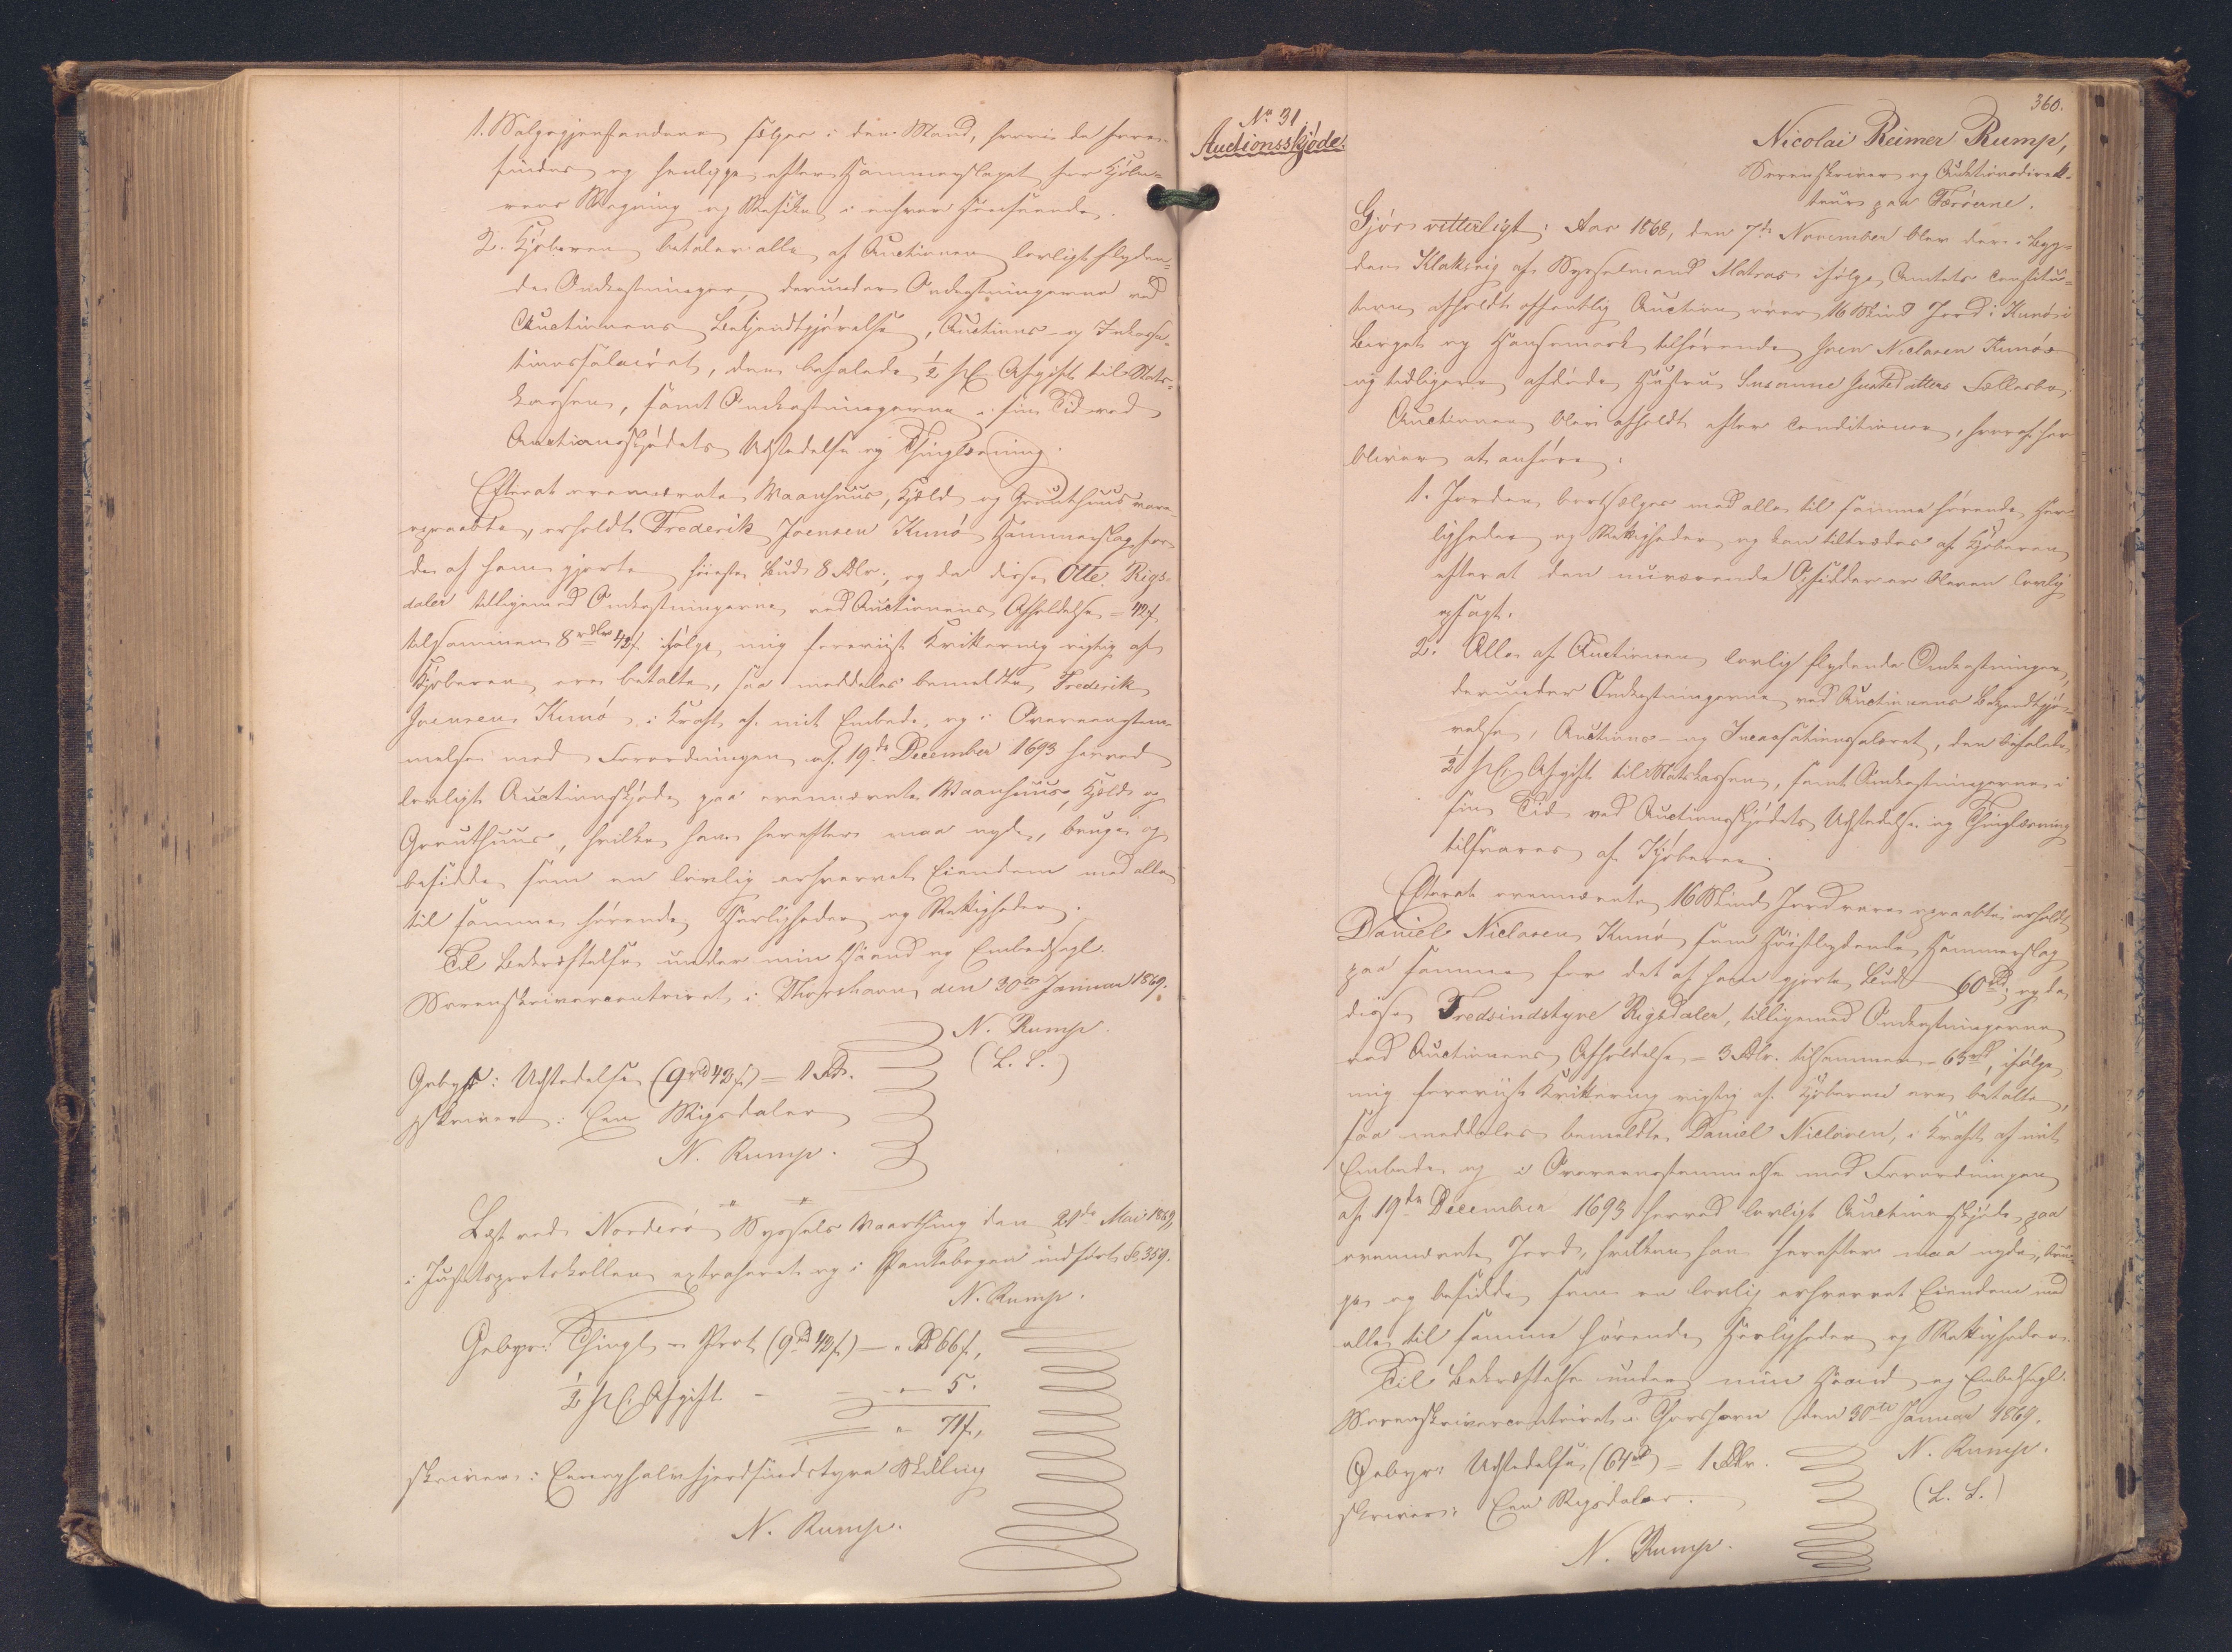 1. Salgsgjenstandene sælges i den Stand, hvori de forre-
findes og henligge efter Hammerslaget for Kjøbe-
rens Regning og Risiko i enhver Henseende.
2. Kjøberen betaler alle af Auctionen lovligt flyden-
de Omkostninger, derunder Omkostningerne ved
Auctionens Bekjendtgjørelse, Auctions- og Inkassa-
tionssalairet, den befalede ½ pC. Afgift til Stats-
kassen, samt Omkostningerne i sin Tid ved
Auctionsskjødets Udstedelse og Thinglæsning.
Efterat ovennævnte Vaanhuus, Hjeld og Grouthuus vare
opraabte, erholdt Frederik Joensen Kunø Hammerslag for
de af ham gjorte høieste Bud 8 Rdlr., og da disse Otte Rigs-
daler tilligemed Omkostningerne ved Auctionens Afholdelse = 42 f
tilsammen 8 rdlr 42 f. ifølge mig foreviist Kvittering rigtig af
Kjøberen ere betalte, saa meddeles bemeldte Frederik
Joensen Kunø, i Kraft af mit Embede, og i Overeensstem-
melse med Forordningen af 19de December 1693 herved
lovligt Auctionsskjøde paa ovennævnte Vaanhuus, Hjeld og
Grouthuus, hvilke han herefter maa nyde, bruge og
besidde som en lovlig erhvervet Eiendom med alle
til samme hørende Herligheder og Rettigheder.
Til Bekræftelse under min Haand og Embedssegl.
Sorenskrivercontoiret i Thorshavn, den 30te Januar 1869.
N. Rump.
(L. S.)
Gebyr: Udstedelse (9 rd 42 f.) = 1 Rd.
skriver: Een Rigsdaler
N. Rump.
Læst ved Norderø Syssels Vaarthing den 21de Mai 1869,
i Justitsprotokollen extraheret og i Pantebogen indført Fo 359.
N. Rump.
Gebyr: Thingl. - Prot. (9 Rd 42 f.) — " Rd 66 f.,
½ pC. Afgift - - " — 5.
" 71 f.,
skriver: Eenoghalvfjerdsindstyve Skilling
N. Rump.
360.
No 31
Auctionsskjøde.
Nicolai Reimer Rump,
Sorenskriver og Auktionsdirek-
teur paa Færøerne.
Gjør vitterligt: Aar 1868, den 7de November blev der i Byg-
den Klaksvig af Sysselmand Matras ifølge Amtets Constitu-
tion afholdt offentlig Auction over 16 Skind Jord i Kunø i
Byrget og Hansemark tilhørende Joen Niclasen Kunøs
og tidligere afdøde Hustru Susanne Justsdatters Fællesbo.
Auctionen blev afholdt efter Conditioner, hvoraf her
bliver at anføre:
1. Jorden bortsælges med alle til samme hørende Her-
ligheder og Rettigheder og kan tiltrædes af Kjøberen
efterat den nuværende Opsidder er bleven lovlig
opsagt.
2. Alle af Auctionen lovlig flydende Omkostninger,
derunder Omkostningerne ved Auctionens Bekjendtgjø-
relse, Auctions- og Incassationssalairet, den befalede
½ pC. Afgift til Statskassen, samt Omkostningerne i
sin Tid ved Auctionsskjødets Udstedelse og Thinglæsning
tilsvares af Kjøberen.
Efterat ovennævnte 16 Skind Jord vare opraabte, erholdt
Daniel Niclasen Kunø som Høistbydende Hammerslag
paa samme for det af ham gjorte Bud 60 Rd, og da
disse Tredsindstyve Rigsdaler, tilligemed Omkostningerne
ved Auctionens Afholdelse = 3 Rdlr. tilsammen - 63 rd, ifølge
mig foreviist Kvittering rigtig af Kjøberen ere betalte,
saa meddeles bemeldte Daniel Niclasen, i Kraft af mit
Embede og i Overeensstemmelse med Forordningen
af 19de December 1693 herved lovligt Auctionsskjøde paa
ovennævnte Jord, hvilken han herefter maa nyde, bru-
ge og besidde som en lovlig erhvervet Eiendom med
alle til samme hørende Herligheder og Rettigheder.
Til Bekræftelse under min Haand og Embedssegl.
Sorenskrivercontoiret i Thorshavn den 30te Januar 1869.
N. Rump.
(L. S.)
Gebyr: Udstedelse (64 rd) = 1 Rdlr.
skriver: Een Rigsdaler.
N. Rump.